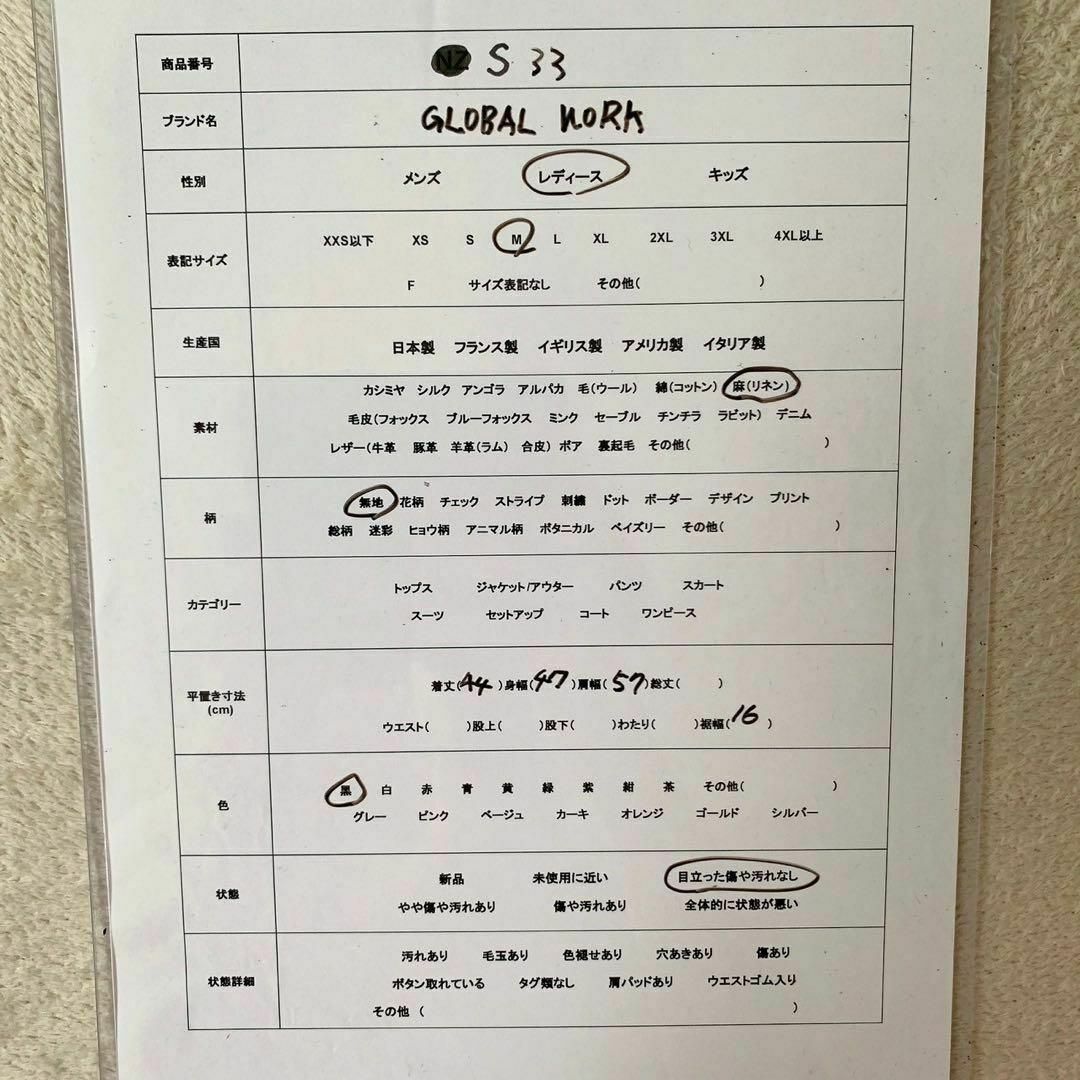 商品番号 NZ S 33
ブランド名 GLOBAL WORK
性別 メンズ レディース キッズ
表記サイズ XXS以下 XS S M L XL 2XL 3XL 4XL以上
F サイズ表記なし その他( )
生産国 日本製 フランス製 イギリス製 アメリカ製 イタリア製
カシミヤ シルク アンゴラ アルパカ 毛(ウール) 綿(コットン) 麻(リネン)
素材 毛皮(フォックス ブルーフォックス ミンク セーブル チンチラ ラビット) デニム
レザー(牛革 豚革 羊革(ラム) 合皮) ボア 裏起毛 その他( )
柄 無地 花柄 チェック ストライプ 刺繍 ドット ボーダー デザイン プリント
総柄 迷彩 ヒョウ柄 アニマル柄 ボタニカル ペイズリー その他( )
カテゴリー トップス ジャケット/アウター パンツ スカート
スーツ セットアップ コート ワンピース
平置き寸法 着丈(44)身幅(47)肩幅(57)総丈( )
(cm) ウエスト( )股上( )股下( )わたり( )裾幅(16)
色 黒 白 赤 青 黄 緑 紫 紺 茶 その他( )
グレー ピンク ベージュ カーキ オレンジ ゴールド シルバー
状態 新品 未使用に近い 目立った傷や汚れなし
やや傷や汚れあり 傷や汚れあり 全体的に状態が悪い
汚れあり 毛玉あり 色褪せあり 穴あきあり 傷あり
状態詳細 ボタン取れている タグ類なし 肩パッドあり ウエストゴム入り
その他 ( )